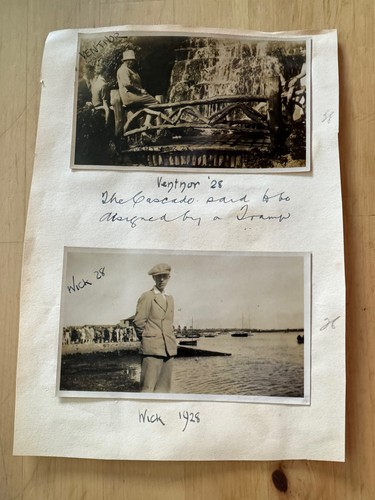 Ventnor 28
Ventnor '28
The Cascade said to be
designed by a Tramp
Wick 28
Wick 1928